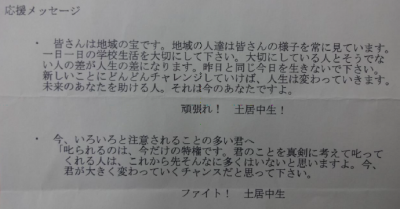 応援メッセージ
・ 皆さんは地域の宝です。地域の人達は皆さんの様子を常に見ています。
一日一日の学校生活を大切にして下さい。大切にしている人とそうでな
い人の差が人生の差になります。昨日と同じ今日を生きないで下さい。
新しいことにどんどんチャレンジしていけば、人生は変わっていきます。
未来のあなたを助ける人。それは今のあなたですよ。
頑張れ! 土居中生!
・ 今、いろいろと注意されることの多い君へ
「叱られるのは、今だけの特権です。君のことを真剣に考えて叱って
くれる人は、これから先そんなに多くはいないと思いますよ。今、
君が大きく変わっていくチャンスだと思って下さい。
ファイト! 土居中生